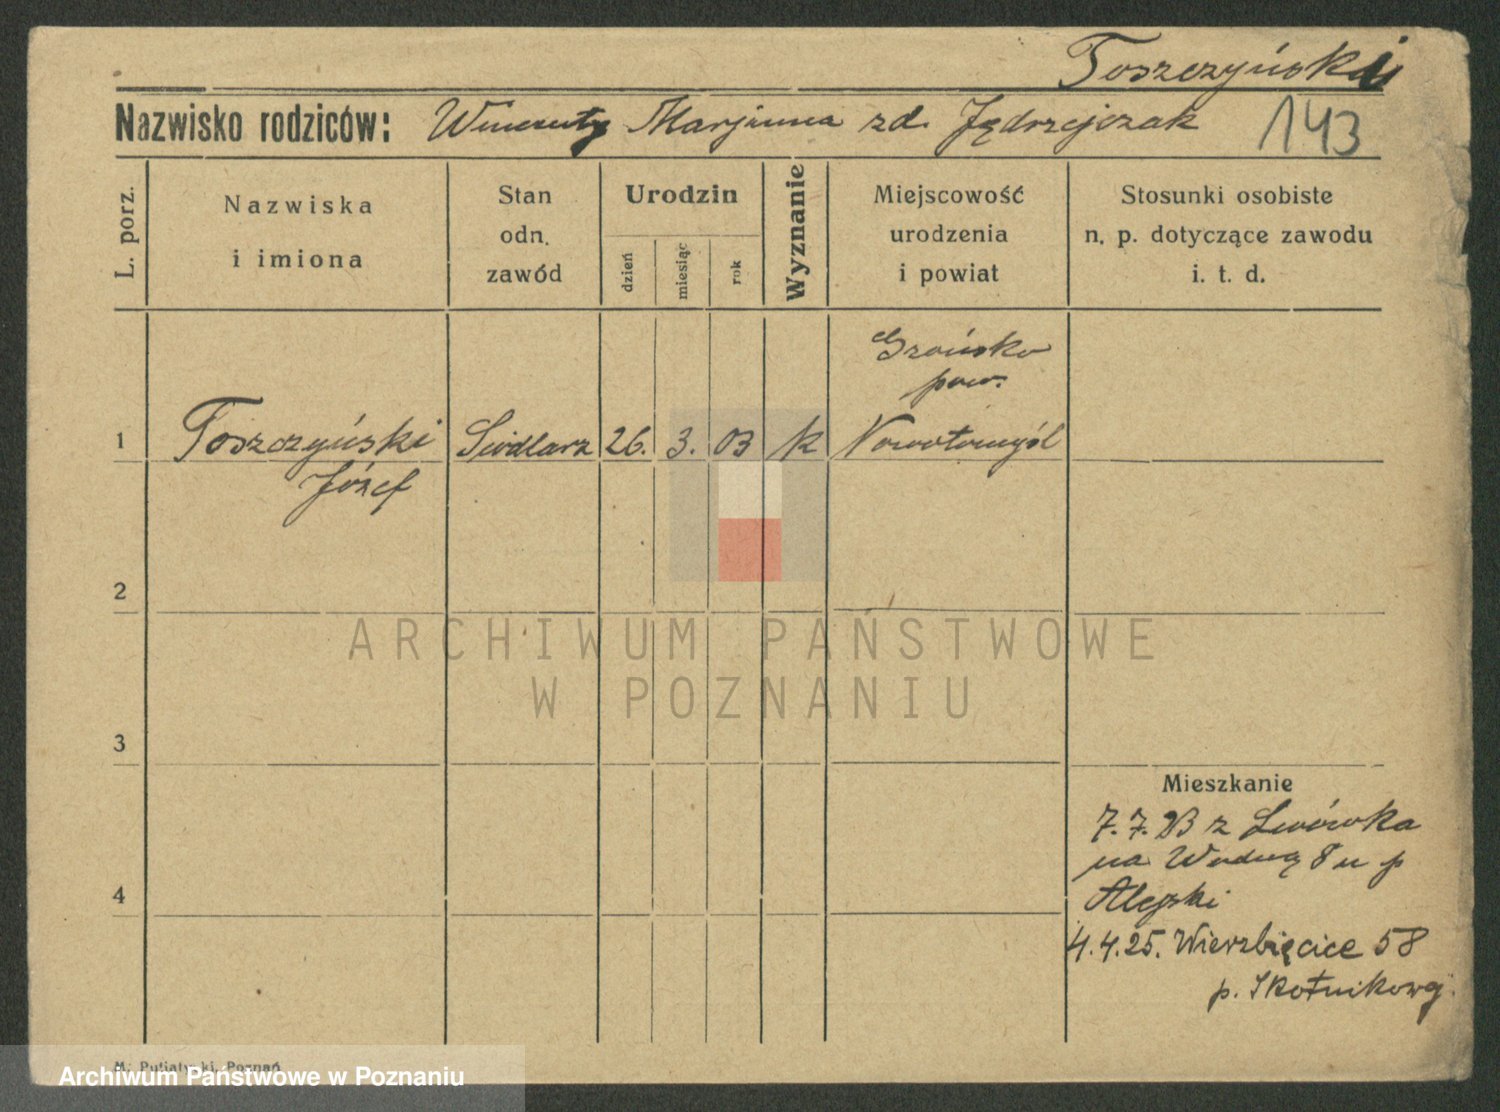 Toszczyński
Nazwisko rodziców: Wincenty Marjanna zd. Jędrzejczak 143
L. porz.
Nazwiska
i imiona
Stan
odn.
zawód
Urodzin
dzień
miesiąc
rok
Wyznanie
Miejscowość
urodzenia
i powiat
Stosunki osobiste
n. p. dotyczące zawodu
i. t. d.
Grońsko
pow.
1 Toszczyński Siodlarz 26. 3. 03 k Nowotomyśl
Józef
2
ARCHIWUM PAŃSTWOWE
W POZNANIU
3
Mieszkanie
7.7.23 z Lwówka
na Wodną 8 u p
Alejski
4
4.4.25. Wierzbięcice 58
p. Skotnikowej.
M. Putiatycki, Poznań
Archiwum Państwowe w Poznaniu